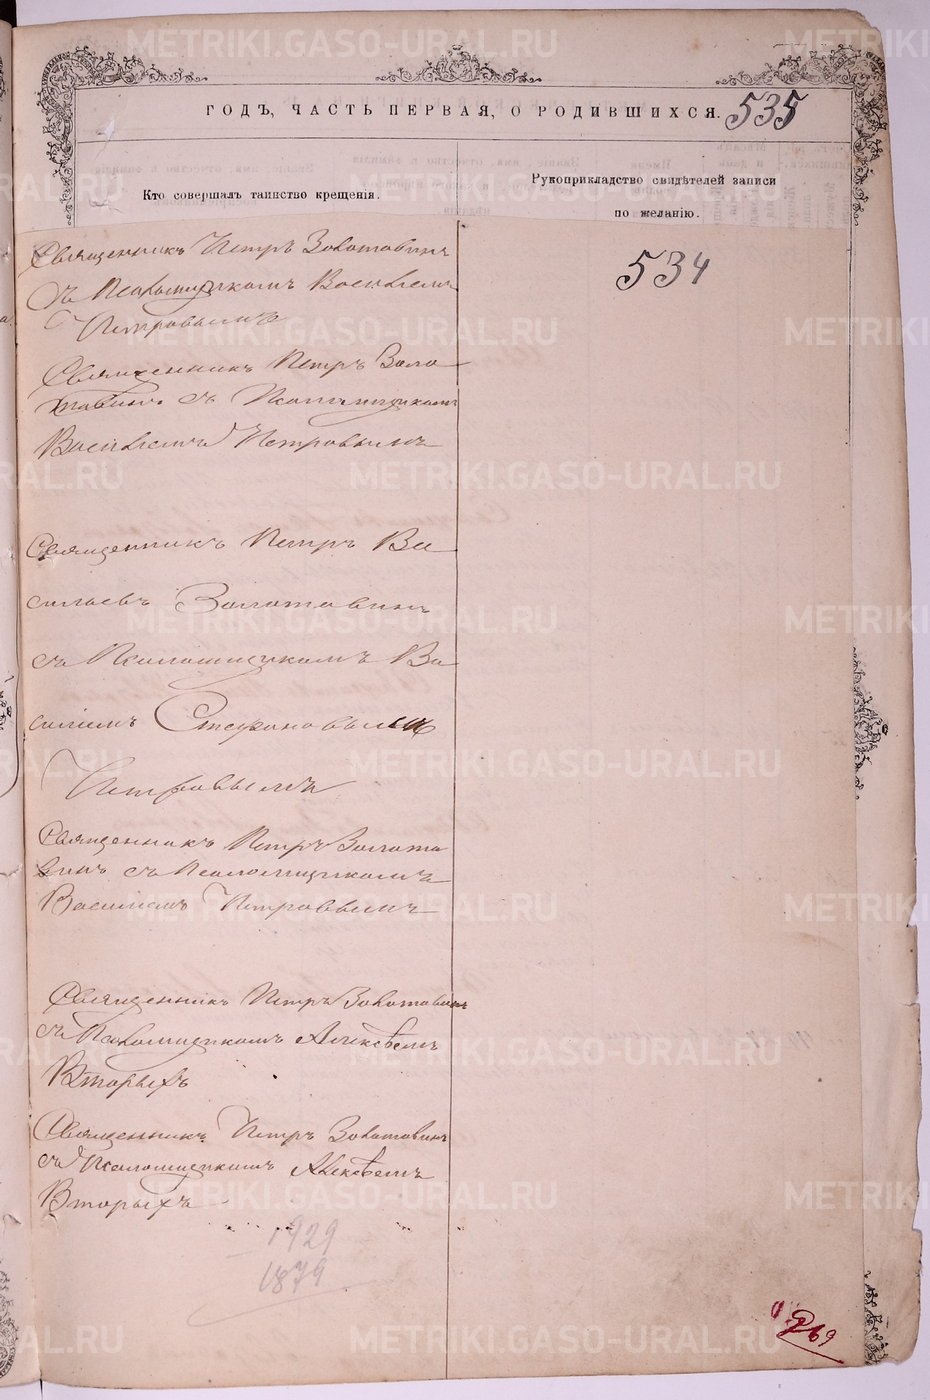 METRIKI.GASO-URAL.RU
ГОДЪ, ЧАСТЬ ПЕРВАЯ, О РОДИВШИХСЯ. 535
Кто совершалъ таинство крещенія.
Рукоприкладство свидѣтелей записи
по желанію.
534
Священникъ Петръ Золотавинъ
съ Псаломщикомъ Василіемъ
Петровымъ
Священникъ Петръ Золо
тавинъ съ Псаломщикомъ
Василіемъ Петровымъ
Священникъ Петръ Ва
сильевъ Золотавинъ
съ Псаломщикомъ Ва
силіемъ Стефановымъ
Петровымъ
Священникъ Петръ Золота
винъ съ Псаломщикомъ
Василіемъ Петровымъ
Священникъ Петръ Золотавинъ
съ Псаломщикомъ Алексѣемъ
Вторыхъ
Священникъ Петръ Золотавинъ
съ Псаломщикомъ Алексѣемъ
Вторыхъ
1929
1879
269